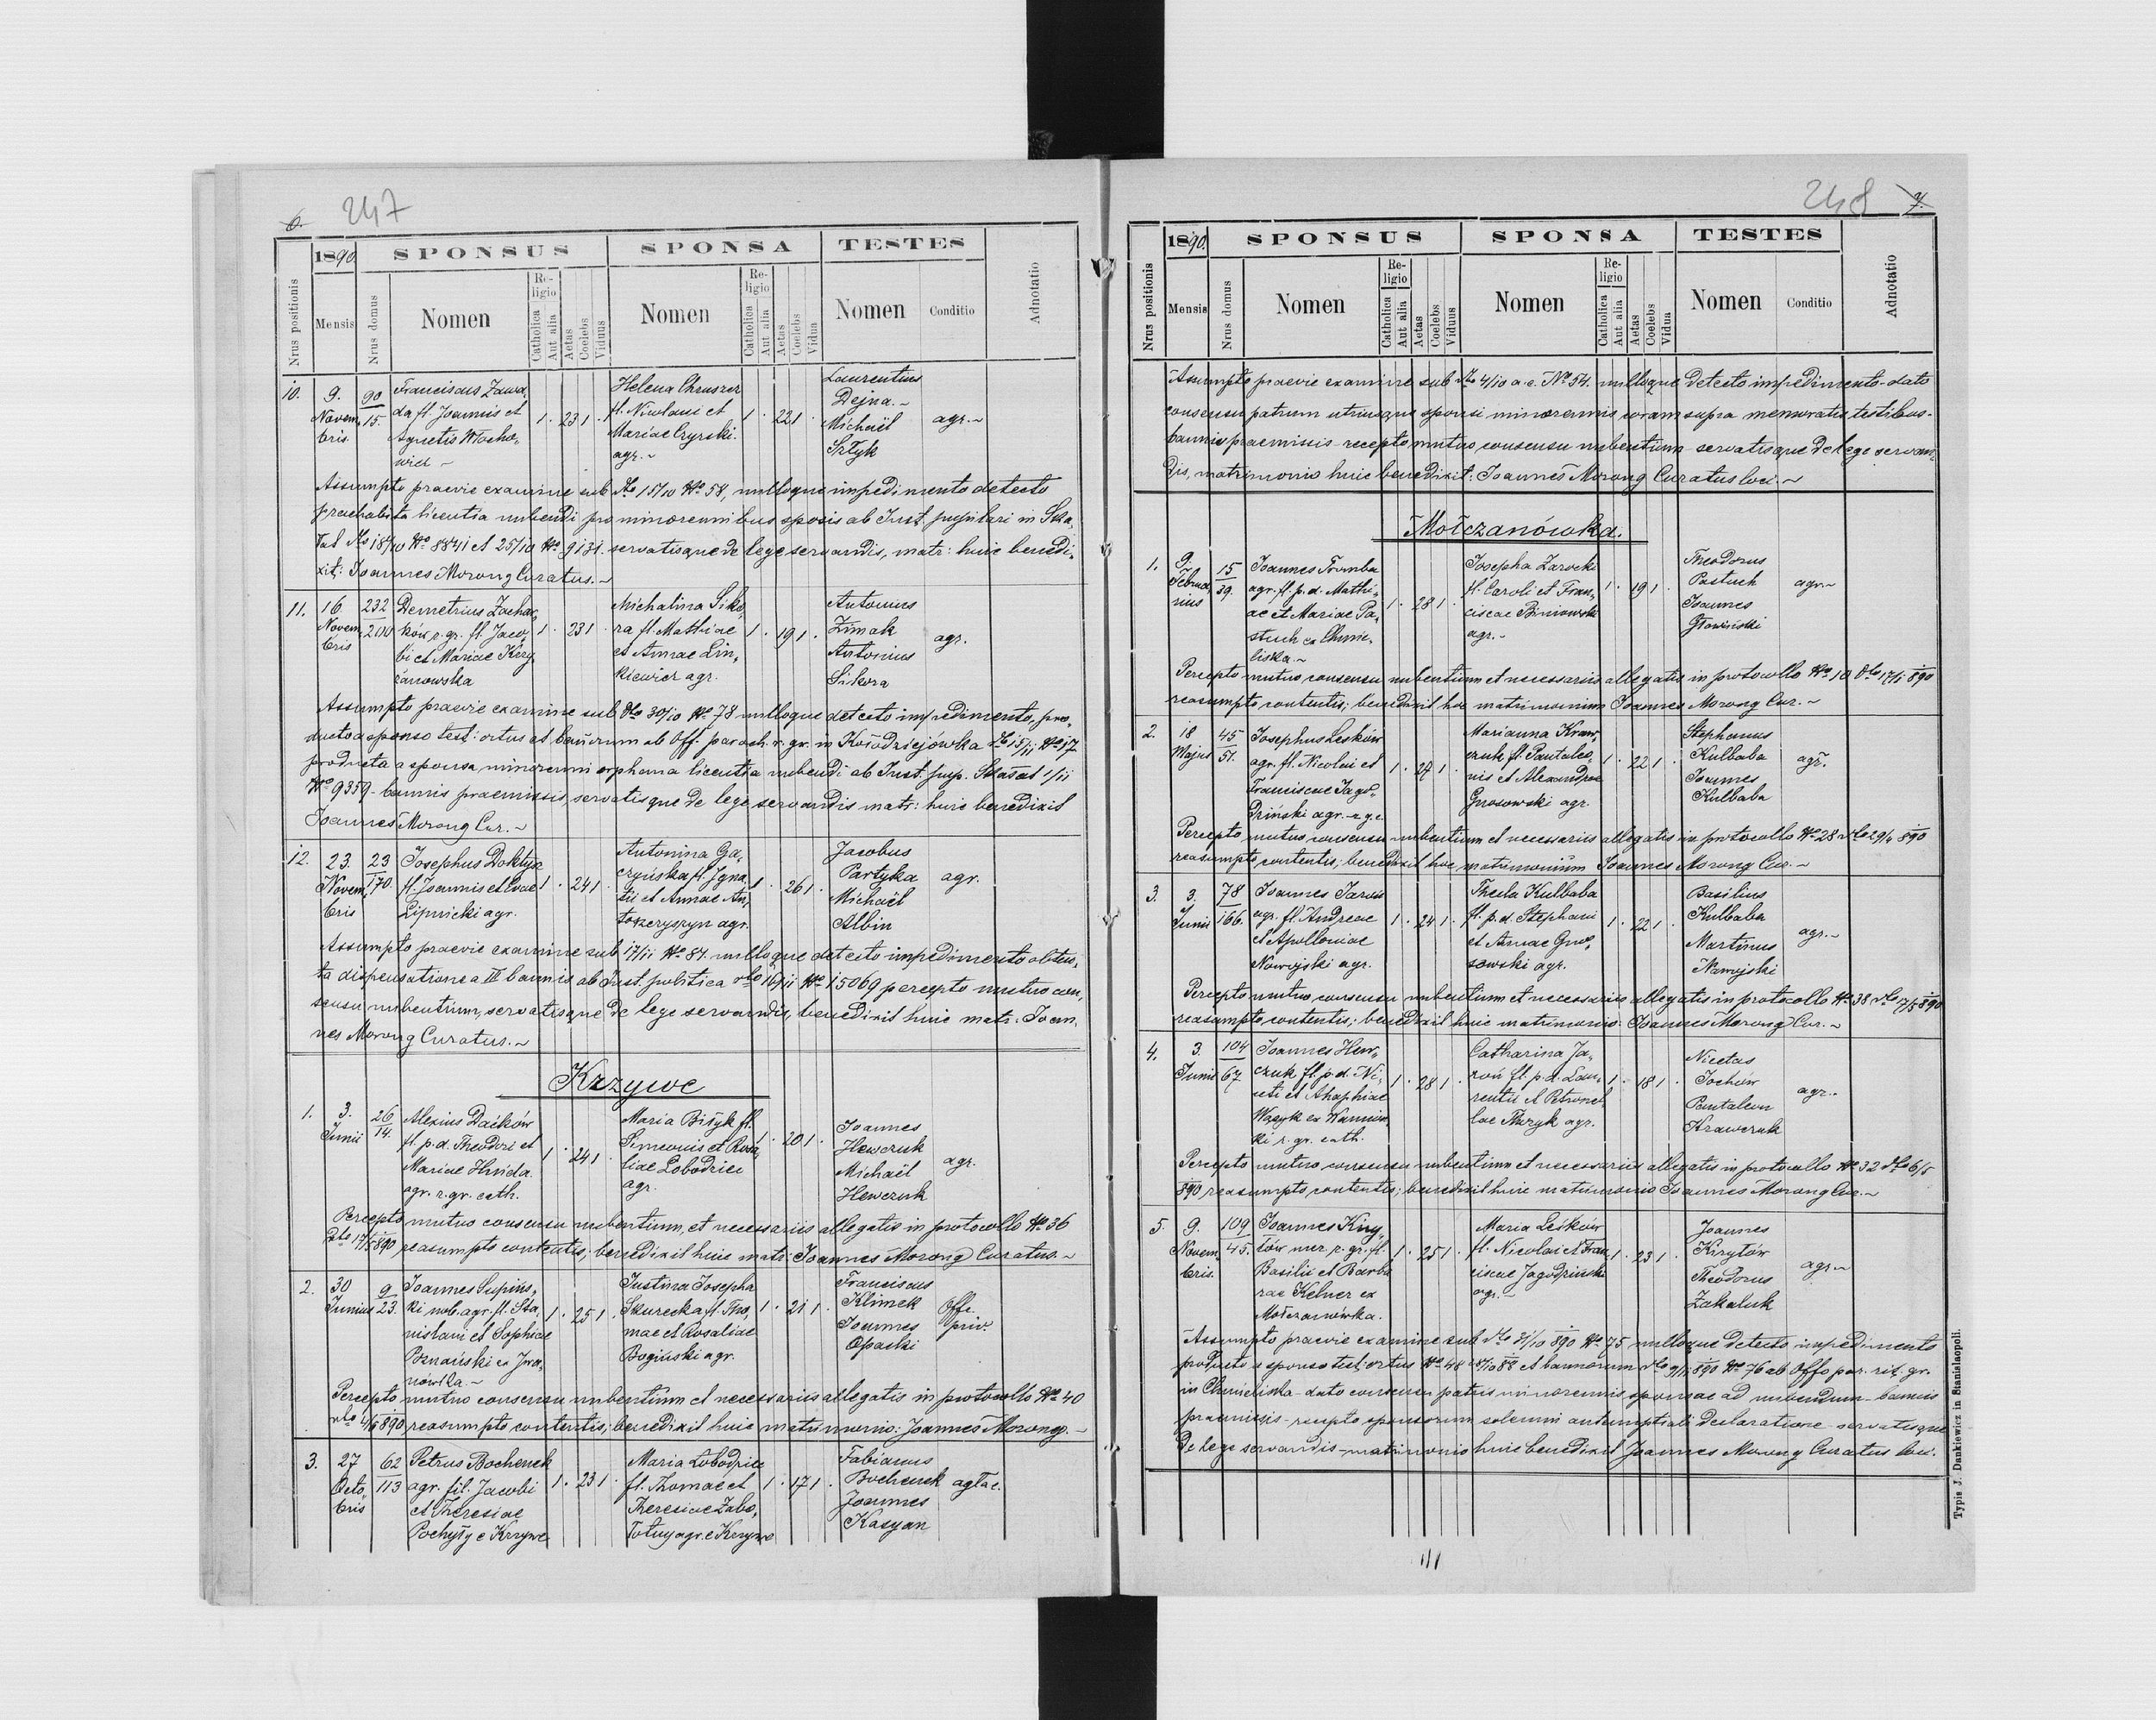 6. 247
1890. SPONSUS SPONSA TESTES
Nrus positionis Mensis Nrus domus Nomen Religio Catholica Aut alia Aetas Coelebs Viduus Nomen Religio Catholica Aut alia Aetas Coelebs Vidua Nomen Conditio Adnotatio
10. 9. 90 Franciscus Zawa, Helena Chruszcz Laurentius
Novem, 15. da fl. Joannis et 1 . 23 1 . fl. Nicolaui et 1 . 22 1 . Dejna.~
bris Agnetis Włocho, Mariae Czyrski. Michaël agr.~
wicz ~ agr.~ Sztyk
Assumpto praevie examine sub dto 15/10 No 58, nulloque impedimento detecto
praehabita licentia nubendi pro minorennibus sposis ab Inst. pupilari in Ska,
łat dto 18/10 No 8841 et 25/10 No 9131. servatisque de lege servandis, matr: huic benedi,
xit: Joannes Morong Curatus.~
11. 16 232 Demetrius Zachar, Michalina Siko, Antonius
Novem, 200 ków r. gr. fl. Jaco, 1 . 23 1 . ra fl. Mathiae 1 . 19 1 . Zimak agr.
bris bi et Mariae Krzy et Annae Lin, Antonius
żanowska kiewicz agr. Sikora
Assumpto praevie examine sub dto 30/10 No 78 nulloque detecto impedimento, pro,
ducto a sponso test: ortus et bannorum ab Off. paroch. r. gr. in Kołodziejówka dto 15/11 No 17
producta a sponsa, minorenni orphana licentia nubendi ab Inst. pup. Skałat 1/11
No 9359 - bannis praemissis, servatisque de lege servandis matr: huic benedixit
Joannes Morong Cur.~
12. 23. 23 Josephus Doktyz Antonina Ga, Jacobus
Novem, 170. fl. Joannis et Evae 1 . 24 1 . czyńska fl. Igna, 1 . 26 1 . Partyka agr.
bris Lipnicki agr. tii et Annae An, Michaël
toszczyszyn agr. Albin
Assumpto praevie examine sub 17/11 No 81. nulloque detecto impedimento obten,
ta dispensatione a III bannis ab Inst. politica dto 16/11 No 15069 percepto mutuo con,
sensu nubentium, servatisque de lege servandis, benedixit huic matr: Joan,
nes Morong Curatus.~
Krzywe
1. 3. 26 Alexius Daćków Maria Biłyk fl. Joannes
Junii 14. fl. p. d. Theodori et 1 . 24 1 Simeonis et Rosa, 1 . 20 1 . Hewczuk
Mariae Hnida. liae Lobodziec Michaël agr.
agr. r. gr. cath. agr. Hewczuk
Percepto mutuo consensu nubentium, et necessariis allegatis in protocollo No 36
dto 17/5 890 reasumpto contentis; benedixit huic matr: Joannes Morong Curatus.~
2. 30 9 Joannes Supińs, Justina Josepha Franciscus
Junius 23. ki nob. agr. fl. Sta, 1 . 25 1 . Skurecka fl. Tho, 1 . 21 1 . Klimek Offe.
nislaui et Sophiae mae et Rosaliae Joannes priv.
Poznański ex Iwa, Bogiński agr. Opacki
nówka.~
Percepto mutuo consensu nubentium et necessariis allegatis in protocollo No 40
dto 4/6 890 reasumpto contentis; benedixit huic matrimonio: Joannes Morong.~
3. 27 62 Petrus Bochenek Maria Lobodziec Fabianus
Octo, 113 agr. fil. Jacobi 1 . 23 1 . fl. Thomae et 1 . 17 1 . Bochenek agłae.
bris et Theresiae Theresiae Zabo, Joannes
Pochyły e Krzywe totny agr. e Krzywe Kasyan
248 7.
1890. SPONSUS SPONSA TESTES
Nrus positionis Mensis Nrus domus Nomen Religio Catholica Aut alia Aetas Coelebs Viduus Nomen Religio Catholica Aut alia Aetas Coelebs Vidua Nomen Conditio Adnotatio
Assumpto praevie examine sub dto 4/10 a. c. No 54. nulloque detecto impedimento - dato
consensu patrum utriusque sponsi minorennis coram supra memoratis testibus -
bannis praemissis - recepto mutuo consensu nubentium servatisque de lege servan,
dis, matrimonio huic benedixit: Joannes Morong Curatus loci.~
Mołczanówka.
1. 9. 15 Joannes Tromba Josepha Zarocki Theodorus
Februa, 39. agr. fl. p. d. Mathi, 1 . 28 1 . fl. Caroli et Fran, 1 . 19 1 . Pastuch agr.~
rius ae et Mariae Pa, ciscae Biniowski Joannes
stuch ex Chmie, agr.~ Głowiński
liska.~
Percepto mutuo consensu nubentium et necessariis allegatis in protocollo No 10 dto 17/1 890
reasumpto contentis; benedixit hoc matrimonium Joannes Morong Cur.~
2. 18 45 Josephus Leśków Marianna Kraw, Stephanus
Majus 51. agr. fl. Nicolai et 1 . 27 1 . czuk fl. Pantaleo, 1 . 22 1 . Kulbaba agr.
Franciscae Jago, nis et Alexandrae Joannes
dziński agr. Gnosowski agr. Kulbaba
Percepto mutuo consensu nubentium et necessariis allegatis in protocollo No 28 dto 29/4 890
reasumpto contentis; benedixit hoc matrimonium Joannes Morong Cur.~
3. 3. 78 Joannes Jaroń Thecla Kulbaba Basilius
Junii 166. agr. fl. Andreae 1 . 24 1 . fl. p. d. Stephani 1 . 22 1 . Kulbaba
et Apolloniae et Annae Gno, Martinus agr.~
Nowojski agr. sowski agr. Nawojski
Percepto mutuo consensu nubentium et necessariis allegatis in protocollo No 38 dto 17/5 890
reasumpto contentis; benedixit huic matrimonio: Joannes Morong Cur.~
4. 3. 104 Joannes Hew, Catharina Ja, Nicetas
Junii 67. czuk fl. p. d. Ni, 1 . 28 1 . roń fl. p. d. Lau, 1 . 18 1 . Jochów
ceti et Ahaphiae rentii et Petronel, Pantaleon agr.~
Wazyk ex agr. Krawczuk
ki r. gr. cath.
Percepto mutuo consensu nubentium et necessariis allegatis in protocollo No 32 dto 6/5
890 reasumpto contentis; benedixit huic matrimonio Joannes Morong Cur.~
5. 9. 109 Joannes Kiry, Maria Leśków Joannes
Novem, 45. tów r. gr. fl. 1 . 25 1 . fl. Nicolai et Fran, 1 . 23 1 . Kirytów agr.~
bris. Basilii et Barba ciscae Jagodziński Theodorus
rae Kelner ex agr.~ Zakaluk
Mołczanówka.
Assumpto praevie examine sub dto 31/10 890 No 75 nulloque detecto impedimento
producto a sponso test: ortus No 48 88 et bannorum dto 9/11 890 No 76 ab Offo par. rit. gr.
in Chmieliska - dato consensu patris minorennis sponsae ad nubendum - bannis
praemissis - recepto sponsorum solemni antenuptiali declaratione - servatisque
de lege servandis - matrimonio huic benedixit Joannes Morong Curatus loci.
Typis J. Dankiewicz in Stanislaopoli.